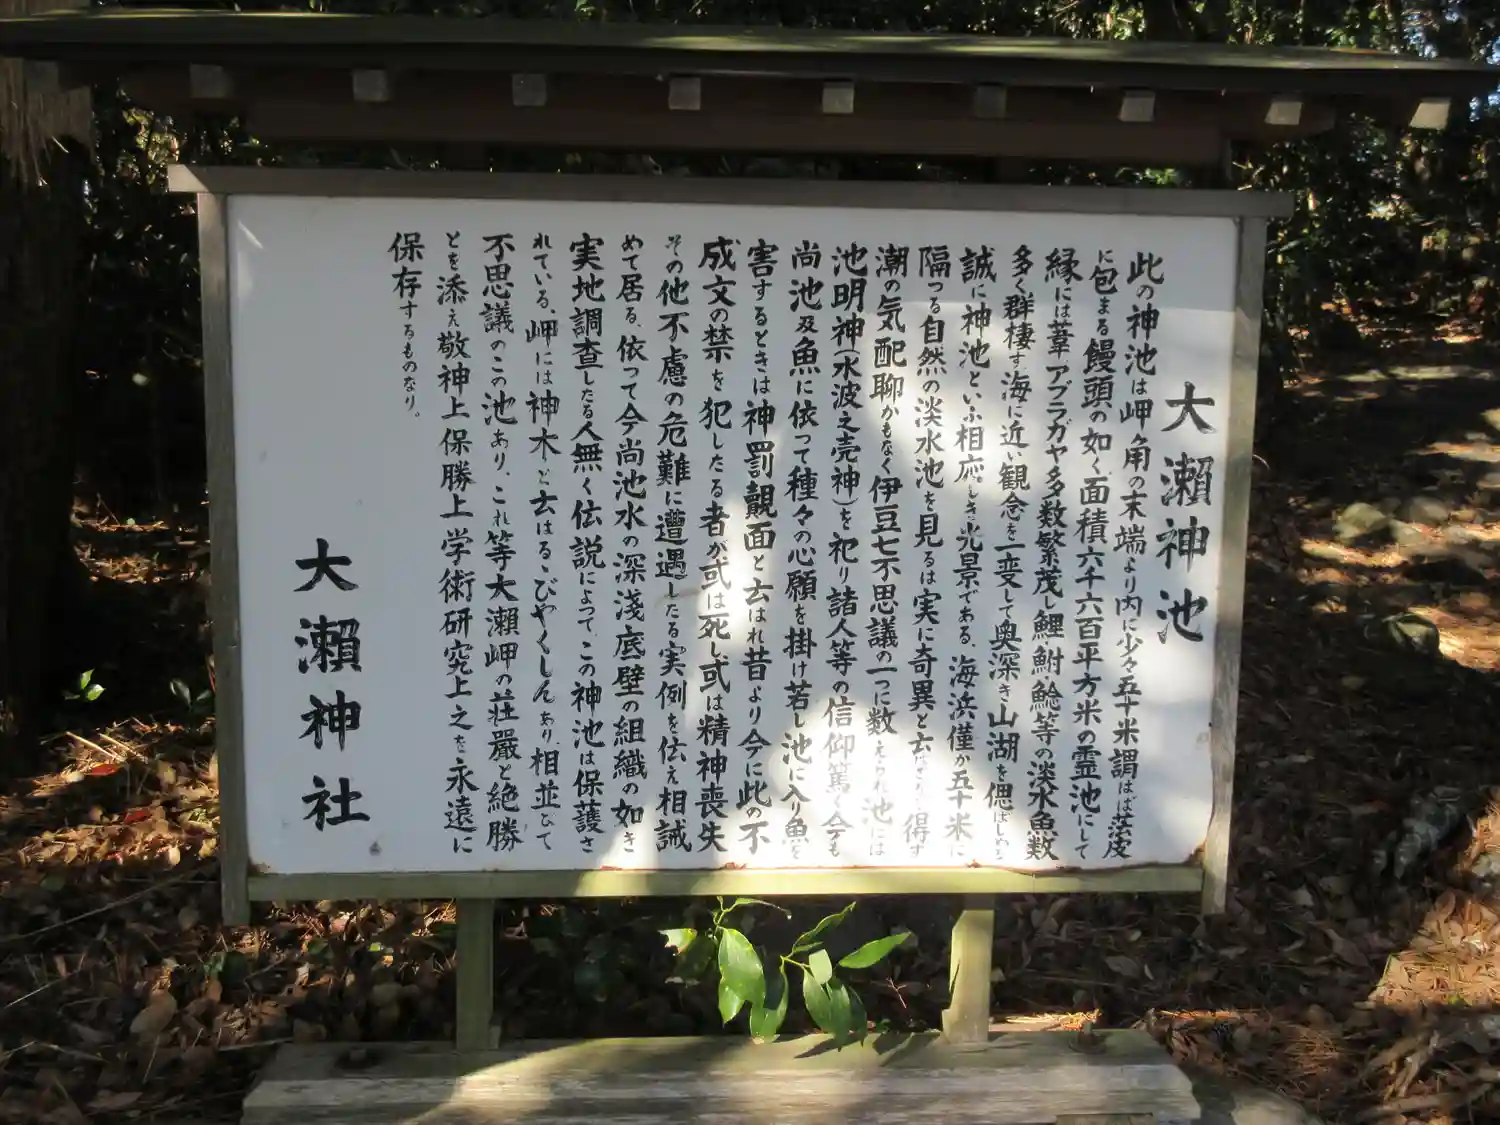 大瀬神池
此の神池は岬角の末端より内に少々五十米謂はば茫皮
に包まる饅頭の如く、面積六千六百平方米の霊池にして
縁には葦アブラガヤ多多数繁茂し鯉鮒鯰等の淡水魚数
多く群棲す、海に近い観念を一変して奥深き山湖を偲ばしめる
誠に神池といふ相応しき光景である、海浜僅か五十米に
隔つる自然の淡水池を見るは実に奇異と云はざるを得ず
潮の気配聊かもなく伊豆七不思議の一つに数えられ池には
池明神(水波之売神)を祀り諸人等の信仰篤く今も
尚池及魚に依って種々の心願を掛け若し池に入り魚を
害するときは神罰覿面と云はれ昔より今に此の不
成文の禁を犯したる者が或は死し或は精神喪失
その他不慮の危難に遭遇したる実例を伝え相誡
めて居る、依って今尚池水の深浅底壁の組織の如き
実地調査したる人無く伝説によって、この神池は保護さ
れている、岬には神木と云はるゝびやくしんあり、相並びて
不思議のこの池あり、これ等大瀬岬の荘厳と絶勝
とを添え敬神上保勝上学術研究上之を永遠に
保存するものなり。
大瀬神社